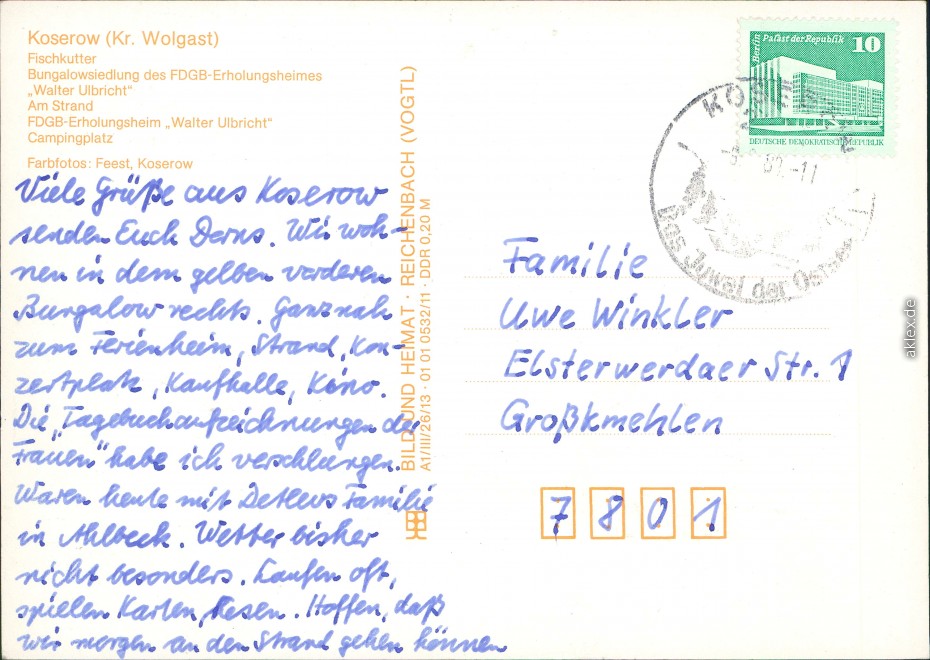 Koserow (Kr. Wolgast)
Fischkutter
Bungalowsiedlung des FDGB-Erholungsheimes
„Walter Ulbricht“
Am Strand
FDGB-Erholungsheim „Walter Ulbricht“
Campingplatz
Farbfotos: Feest, Koserow
Viele Grüße aus Koserow
senden Euch Derns. Wir woh-
nen in dem gelben vorderen
Bungalow rechts. Ganz nah
zum Ferienheim, Strand, Kon-
zertplatz, Kaufhalle, Kino.
Die „Tagebuchaufzeichnungen der
Frauen“ habe ich verschlungen.
Waren heute mit Detlevs Familie
in Ahlbeck. Wetter bisher
nicht besonders. Laufen oft,
spielen Karten, lesen. Hoffen, daß
wir morgen an den Strand gehen können
BILD UND HEIMAT · REICHENBACH (VOGTL)
A1/III/26/13 · 01 01 0532/11 · DDR 0,20 M
Berlin Palast der Republik 10
DEUTSCHE DEMOKRATISCHE REPUBLIK
KOSEROW
-11
Das Juwel der Ostsee
Familie
Uwe Winkler
Elsterwerdaer Str. 1
Großkmehlen
7801
aklex.de